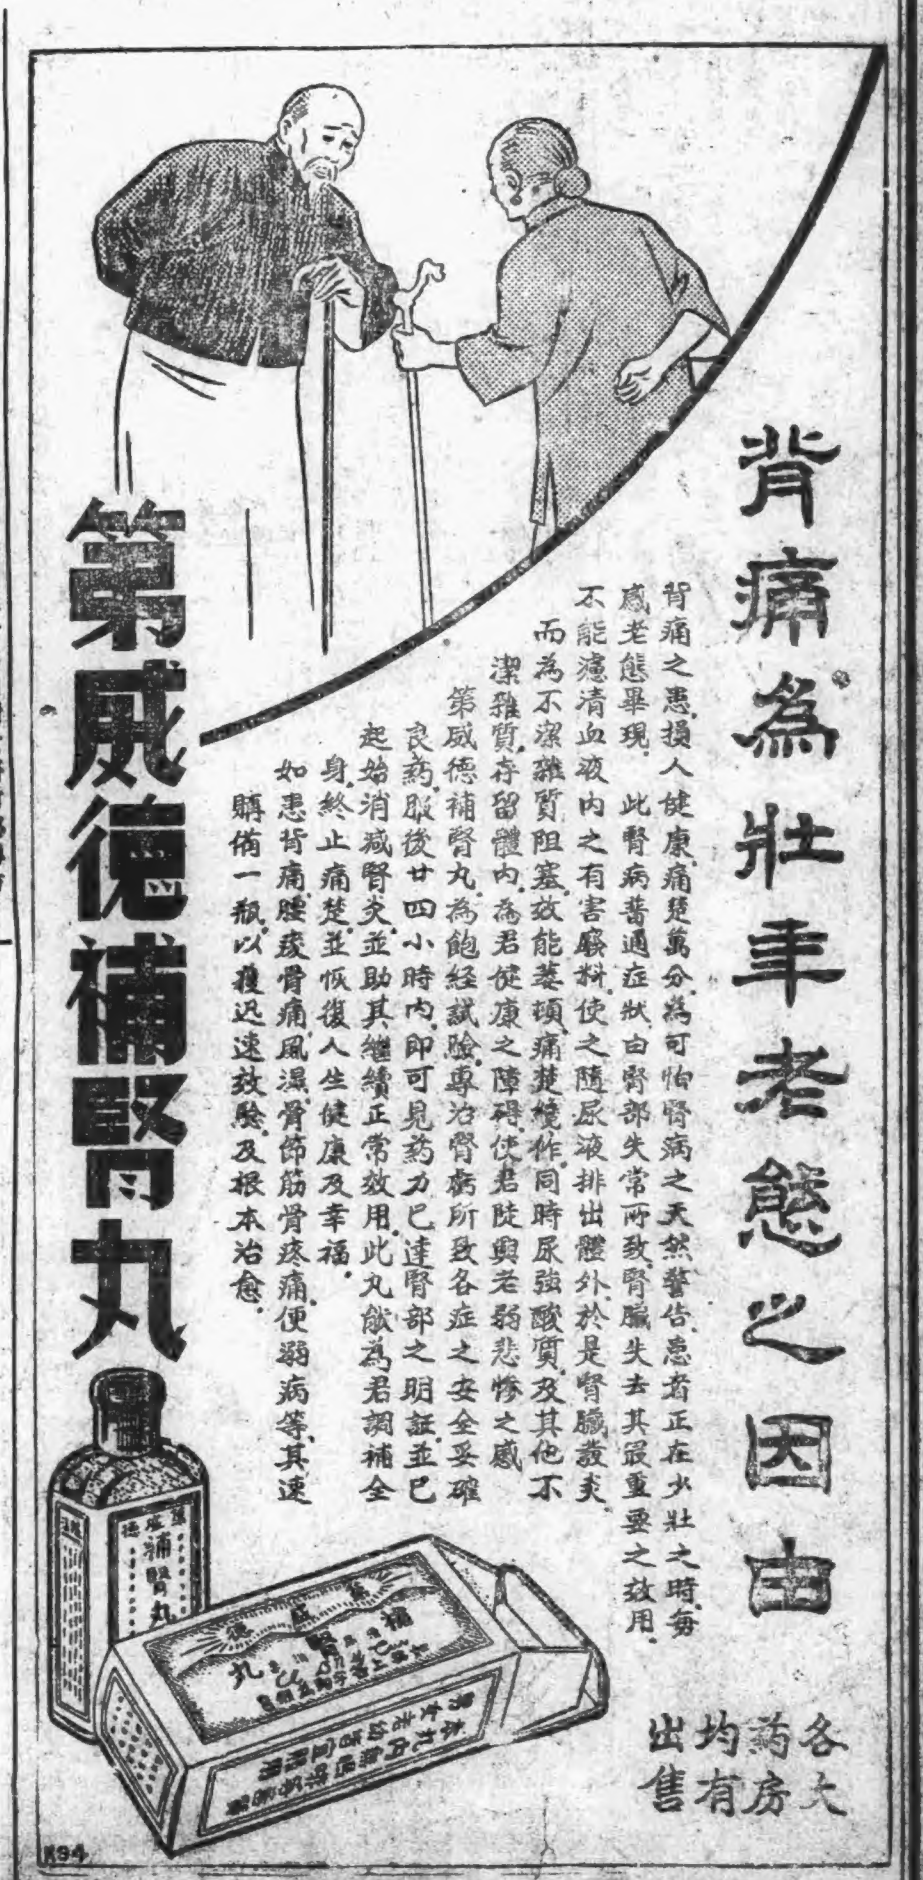 背痛為壯年老態之因由
背痛之患損人健康，痛楚萬分，為可怕腎病之天然警告，患者正在少壯之時，每
感老態畢現，此腎病普通症狀，由腎部失常所致，腎臟失去其最重要之效用，
不能濾清血液內之有害廢料，使之隨尿液排出體外，於是腎臟發炎，
而為不潔雜質阻塞，效能萎頓，痛楚欖作，同時尿強酸質，及其他不
潔雜質，存留體內，為君健康之障碍，使君陡興老弱悲慘之感
第威德補腎丸，為飽經試驗，專治腎虧所致各症之安全妥確
良葯，服後廿四小時內，即可見葯力已達腎部之明証，並已
起始消减腎炎，並助其繼續正常效用，此丸能為君調補全
身，終止痛楚，並恢復人生健康及幸福，
如患背痛，腰痠骨痛，風濕，骨節筋骨疼痛，便溺病等，其速
購備一瓶，以獲迅速效驗，及根本治愈，
第威德補腎丸
各大
葯房
均有
出售
第威德
補腎丸
第威德
補腎丸